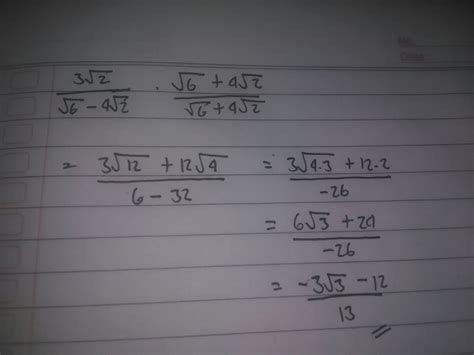 No
Date
3√2 / (√6 - 4√2) · (√6 + 4√2) / (√6 + 4√2)
= (3√12 + 12√4) / (6 - 32) = (3√4.3 + 12.2) / -26
= (6√3 + 24) / -26
= (-3√3 - 12) / 13